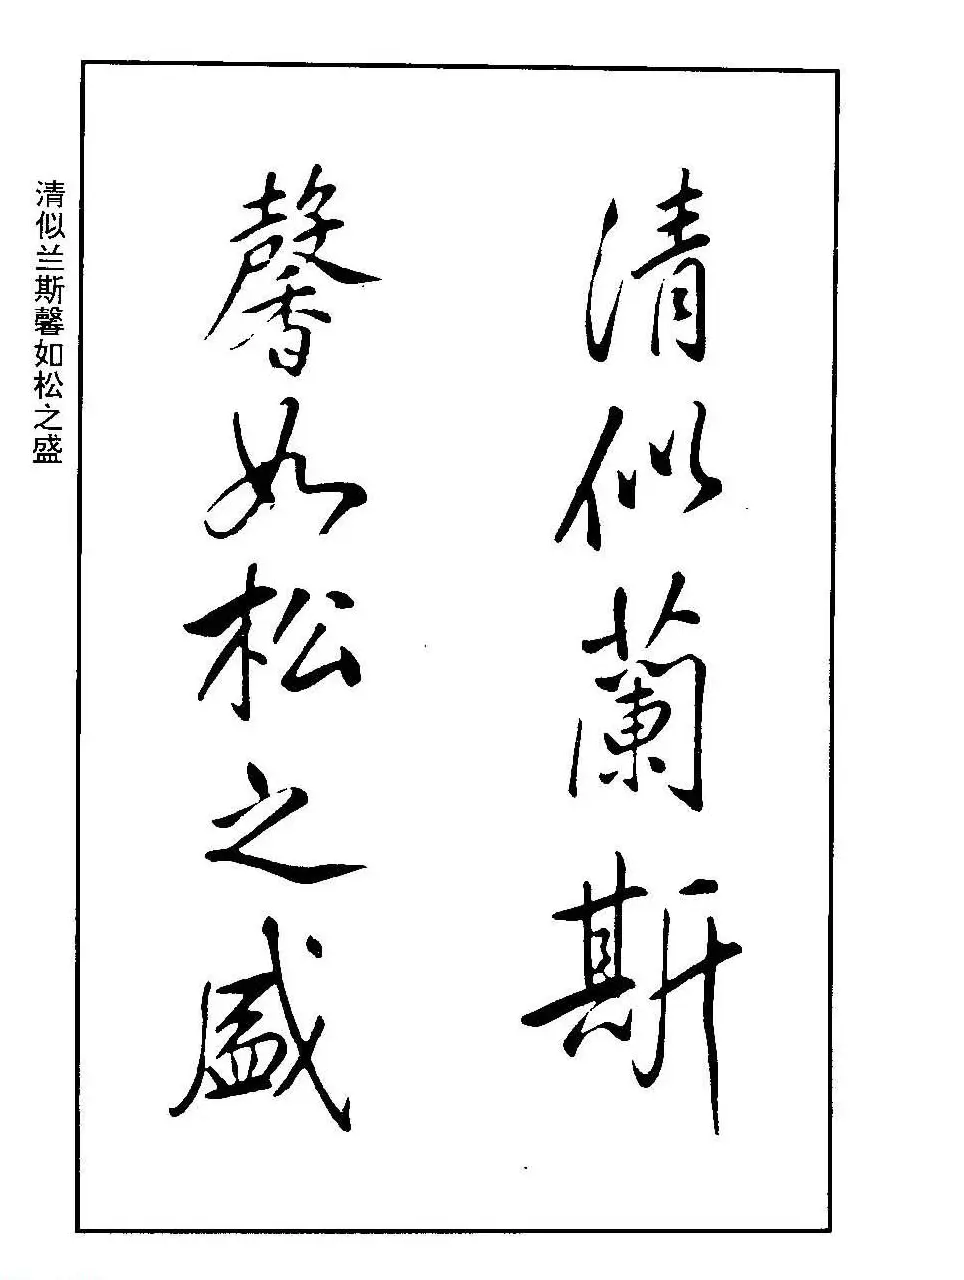 清似蘭斯
馨如松之盛
清似兰斯馨如松之盛